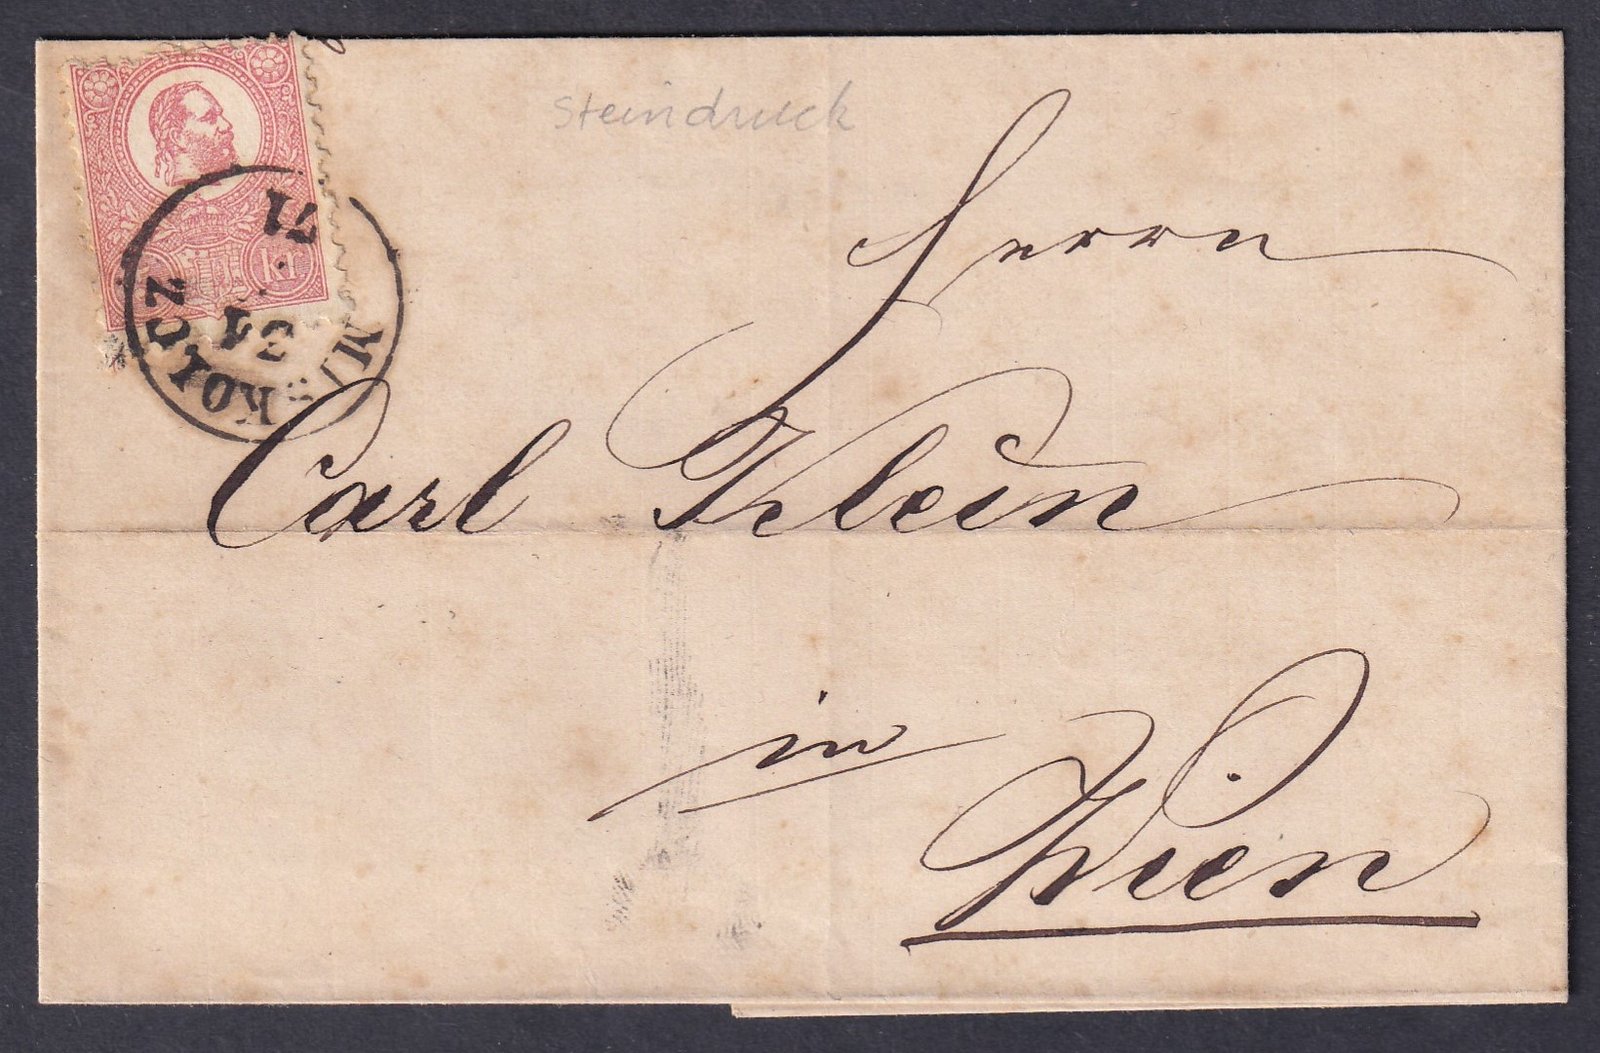 Steindruck
KR
MISKOLCZ
24
71
Herrn
Carl Klein
in
Wien